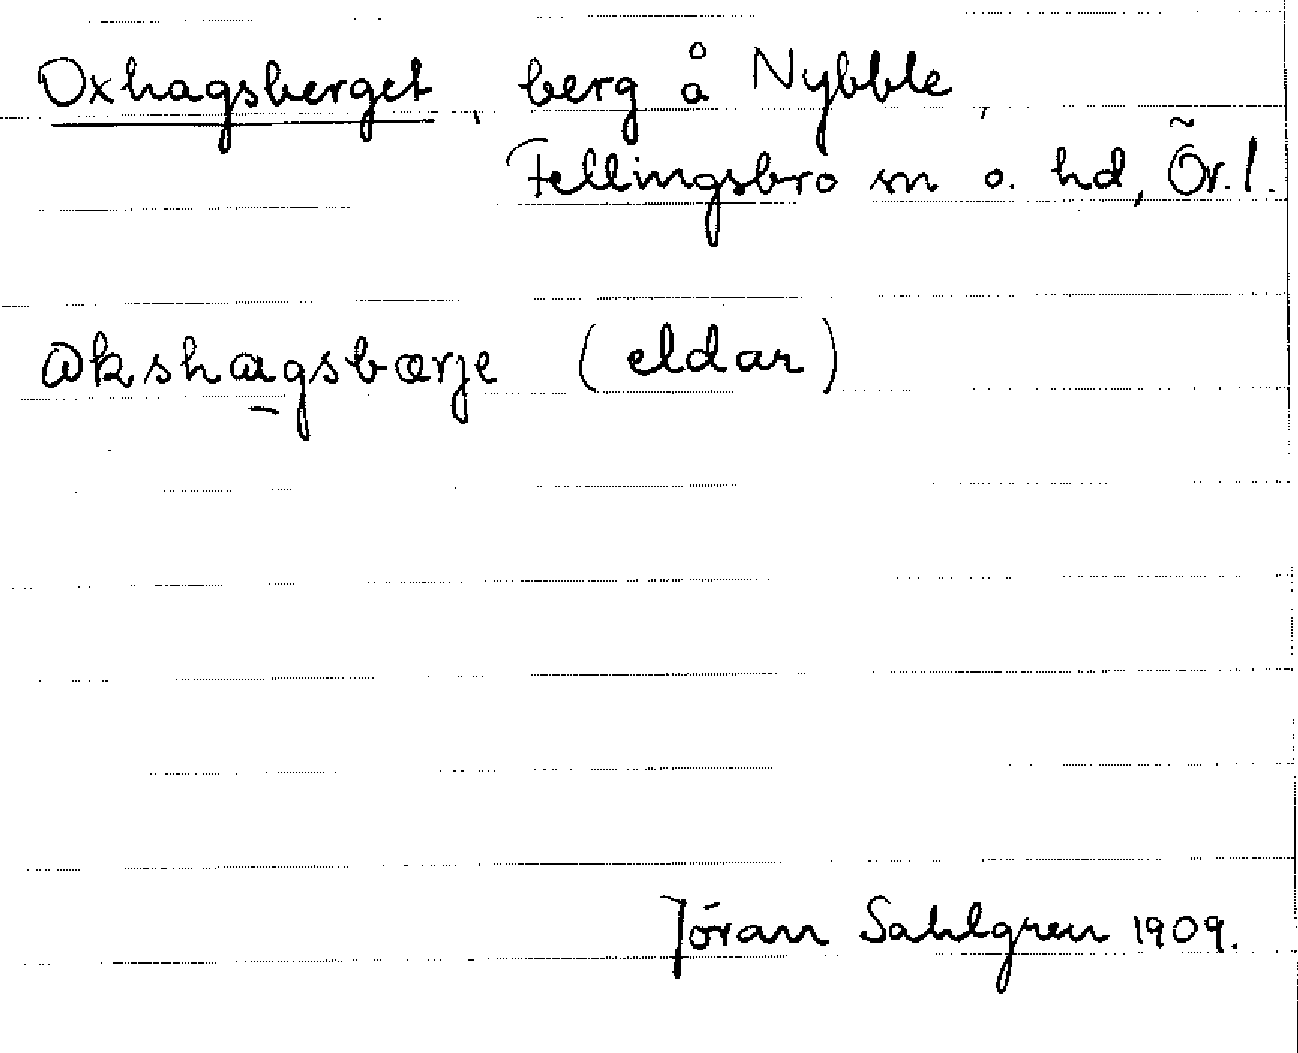 Oxhagsberget, berg å Nybble,
Fellingsbro sn o. hd, Ör. l.
(eldar)
Jöran Sahlgren 1909.